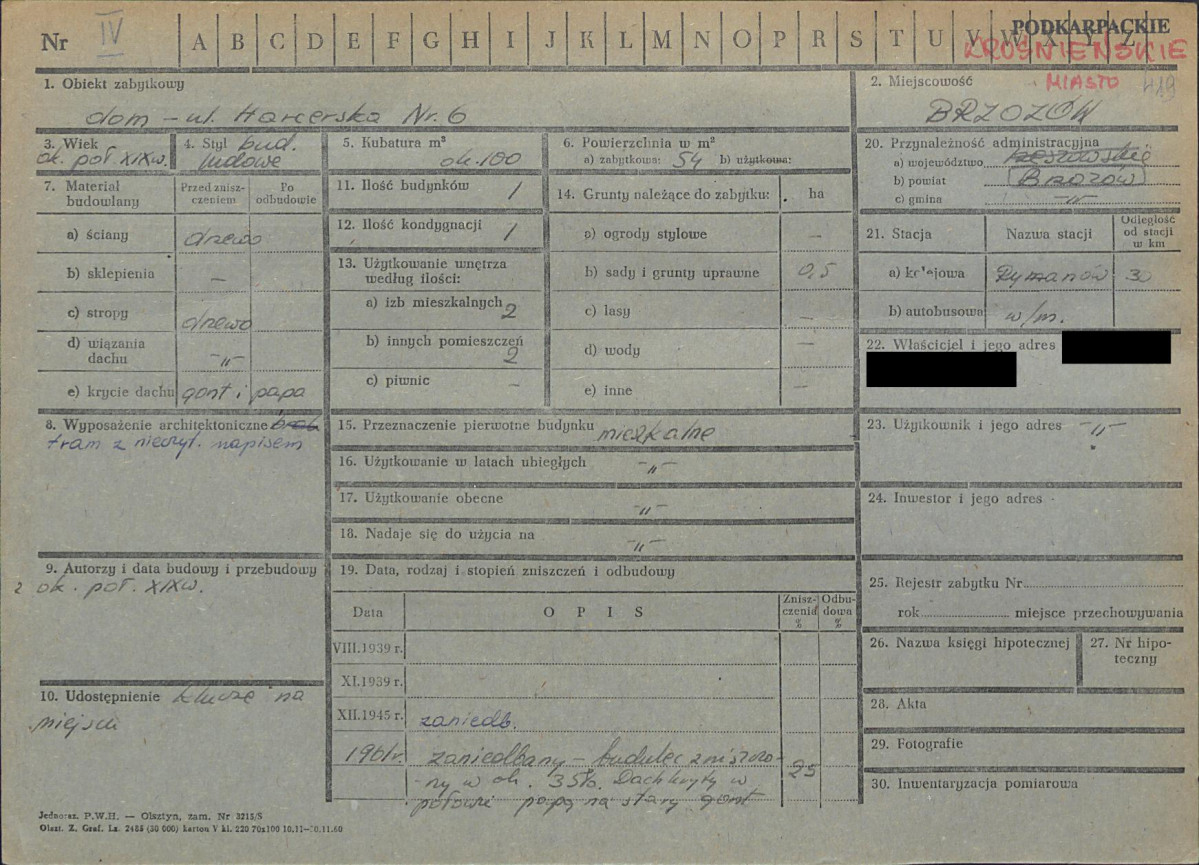 Nr IV A B C D E F G H I J K L M N O P R S T U V W X Y Z
PODKARPACKIE
KROŚNIEŃSKIE
MIASTO 419
1. Obiekt zabytkowy
dom - ul. Harcerska Nr. 6
2. Miejscowość
BRZOZÓW
3. Wiek
ok. poł. XIX w.
4. Styl bud.
ludowe
5. Kubatura m³
ok. 100
6. Powierzchnia w m²
a) zabytkowa: 54 b) użytkowa:
7. Materiał budowlany
Przed zniszczeniem
Po odbudowie
a) ściany drzewo
b) sklepienia —
c) stropy drzewo
d) wiązania dachu -"-
e) krycie dachu gont i papa
11. Ilość budynków 1
12. Ilość kondygnacji 1
13. Użytkowanie wnętrza według ilości:
a) izb mieszkalnych 2
b) innych pomieszczeń 2
c) piwnic —
14. Grunty należące do zabytku: ha
a) ogrody stylowe —
b) sady i grunty uprawne 0,5
c) lasy —
d) wody —
e) inne —
20. Przynależność administracyjna
a) województwo rzeszowskie
b) powiat Brzozów
c) gmina -"-
21. Stacja
Nazwa stacji
Odległość od stacji w km
a) kolejowa Rymanów 30
b) autobusowa w/m.
22. Właściciel i jego adres
8. Wyposażenie architektoniczne
tram z nieczyt. napisem
15. Przeznaczenie pierwotne budynku mieszkalne
16. Użytkowanie w latach ubiegłych -"-
17. Użytkowanie obecne -"-
18. Nadaje się do użycia na -"-
23. Użytkownik i jego adres -"-
24. Inwestor i jego adres
9. Autorzy i data budowy i przebudowy
ok. poł. XIX w.
10. Udostępnienie klucze na
miejscu
19. Data, rodzaj i stopień zniszczeń i odbudowy
Data
O P I S
Zniszczenia %
Odbudowa %
VIII.1939 r.
XI.1939 r.
XII.1945 r. zaniedb.
1961r. zaniedbany - budulec zniszczo-
ny w ok. 35%. Dach kryty w 25
połowie papą na stary gont
25. Rejestr zabytku Nr
rok miejsce przechowywania
26. Nazwa księgi hipotecznej
27. Nr hipoteczny
28. Akta
29. Fotografie
30. Inwentaryzacja pomiarowa
Jednoraz. P.W.H. — Olsztyn, zam. Nr 3215/S
Olszt. Z. Graf. Lz. 2485 (30 000) karton V kl. 220 70x100 10.11—30.11.60